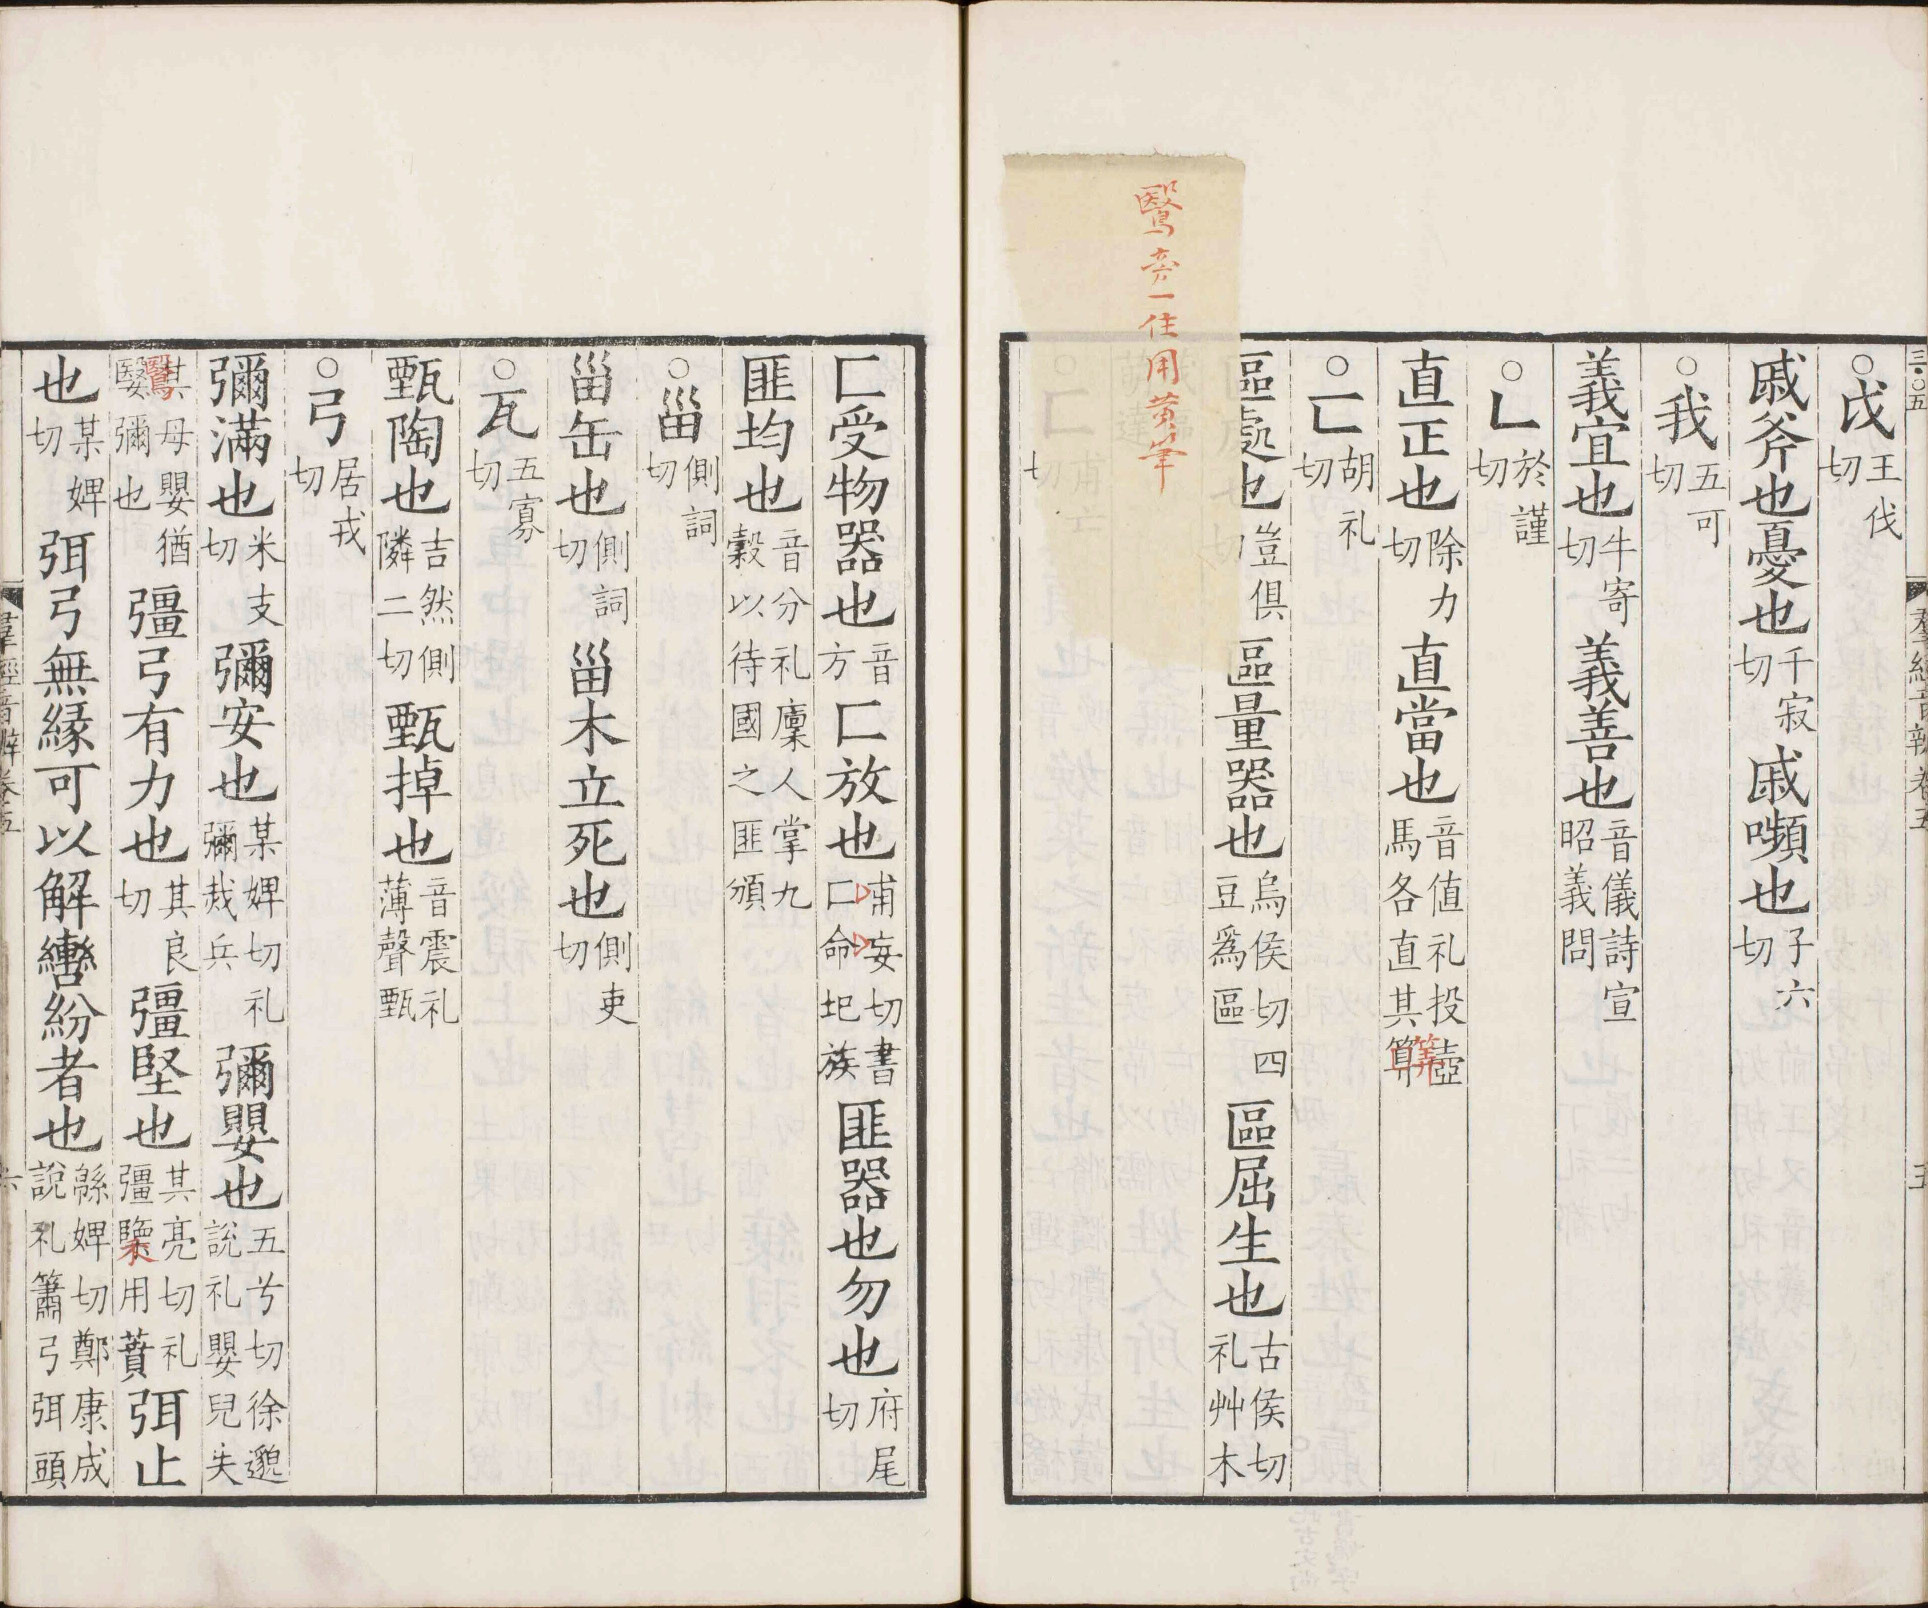 三〇五
羣經音辨卷五
五
○戉王伐切
戚斧也憂也千寂切戚嚬也子六切
○我五可切
義宜也牛寄切義善也音儀詩宣昭義問
○𠃊於謹切
直正也除力切直當也音值礼投壺馬各直其筭
○匸胡礼切
區處也豈俱切區量器也烏侯切四豆爲區區屈生也古侯切礼艸木
○匚甫亡切
鷖旁一住用黄筆
匚受物器也音方匚放也甫妄切書匚命圮族匪器也勿也府尾切
匪均也音分礼廩人掌九穀以待國之匪頒
○甾側詞切
甾缶也側詞切甾木立死也側吏切
○瓦五寡切
甄陶也吉然側隣二切甄掉也音震礼薄聲甄
○弓居戎切
彌滿也米支切彌安也某婢切礼彌烖兵彌嬰也五兮切徐邈說礼嬰兒失
其母嬰猶鷖彌也彊弓有力也其良切彊堅也其亮切礼彊㯺用蕡弭止
也某婢切弭弓無緣可以解轡紛者也緜婢切鄭康成說礼簫弓弭頭
羣經音辨卷五
六